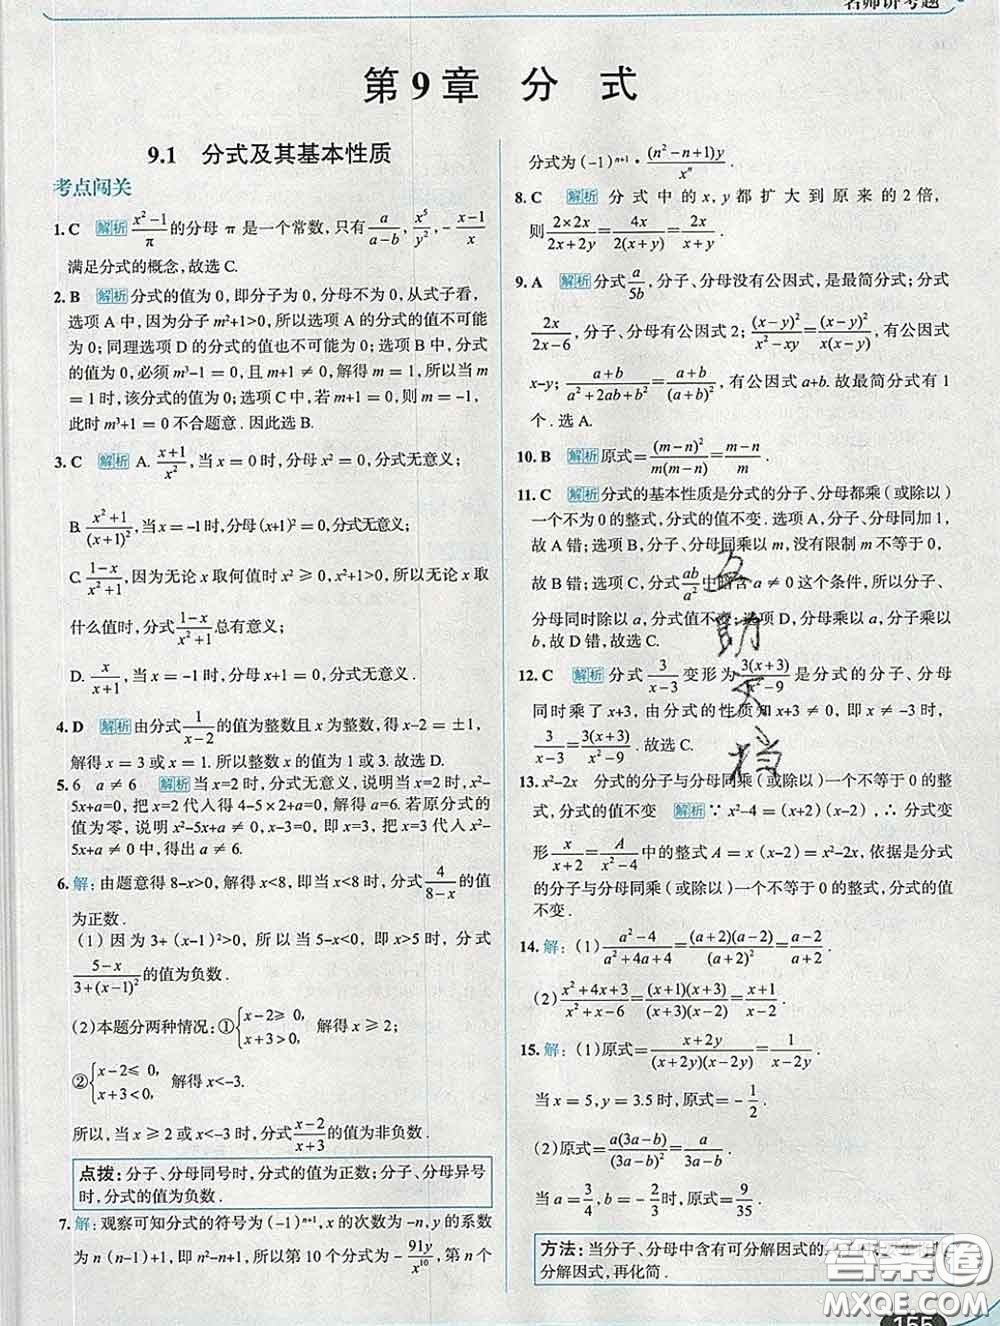 名师讲考题
第9章 分 式
9.1 分式及其基本性质
考点闯关
1. C 解析 (x²-1)/π 的分母 π 是一个常数,只有 a/(a-b), x⁵/y², -(x-1)/x
满足分式的概念,故选C.
2. B 解析 分式的值为0,即分子为0,分母不为0,从式子看,
选项A中,因为分子m²+1>0,所以选项A的分式的值不可能
为0;同理选项D的分式的值也不可能为0;选项B中,分式
的值为0,必须m³-1=0,且m+1≠0,解得m=1,所以当m
=1时,该分式的值为0;选项C中,若m+1=0,则m=-1,
此时m³+1=0不合题意.因此选B.
3. C 解析 A. (x+1)/x²,当x=0时,分母x²=0,分式无意义;
B. (x²+1)/(x+1)²,当x=-1时,分母(x+1)²=0,分式无意义;
C. (1-x)/(x²+1),因为无论x取何值时x²≥0,x²+1>0,所以无论x取
什么值时,分式(1-x)/(x²+1)总有意义;
D. x/(x+1),当x=-1时,分母x+1=0,分式无意义.
4. D 解析 由分式1/(x-2)的值为整数且x为整数,得x-2=±1,
解得x=3或x=1.所以当x的值为1或3.故选D.
5. 6 a≠6 解析 当x=2时,分式无意义,说明当x=2时,x²-
5x+a=0,把x=2代入得4-5×2+a=0,解得a=6.若原分式的
值为零,说明x²-5x+a≠0,x-3=0,即x=3,把x=3代入x²-
5x+a≠0中,得出a≠6.
6. 解:由题意得8-x>0,解得x<8,即当x<8时,分式4/(8-x)的值
为正数.
(1)因为3+(x-1)²>0,所以当5-x<0,即x>5时,分式
(5-x)/(3+(x-1)²)的值为负数.
(2)本题分两种情况:①{x-2≥0, x+3>0, 解得x≥2;
②{x-2≤0, x+3<0, 解得x<-3.
所以,当x≥2或x<-3时,分式(x-2)/(x+3)的值为非负数.
点拨:分子、分母同号时,分式的值为正数;分子、分母异号
时,分式的值为负数.
7. 解:观察可知分式的符号为(-1)ⁿ⁺¹,x的次数为-n,y的系数
为n(n-1)+1,即n²-n+1,所以第10个分式为-91y/x¹⁰,第n个
分式为(-1)ⁿ⁺¹·(n²-n+1)y/xⁿ.
8. C 解析 分式中的x,y都扩大到原来的2倍,
则(2×2x)/(2x+2y)=4x/(2(x+y))=2x/(x+y).
9. A 解析 分式a/5b,分子、分母没有公因式,是最简分式;分式
2x/(2x-6),分子、分母有公因式2;(x-y)²/(x²-xy)=(x-y)²/(x(x-y)),有公因式
x-y;(a+b)/(a²+2ab+b²)=(a+b)/(a+b)²,有公因式a+b.故最简分式有1
个.选A.
10. B 解析 原式=(m-n)²/(m(m-n))=(m-n)/m.
11. C 解析 分式的基本性质是分式的分子、分母都乘(或除以)
一个不为0的整式,分式的值不变.选项A,分子、分母同加1,
故A错;选项B,分子、分母同乘以m,没有限制m不等于0,
故B错;选项C,分式ab/a²中隐含a≠0这个条件,所以分子、
分母同时除以a,分式值不变;选项D,分母除以a,分子乘以
b,故D错,故选C.
12. C 解析 分式3/(x-3)变形为3(x+3)/(x²-9)是分式的分子、分母
同时乘了x+3,由分式的性质知x+3≠0,即x≠-3时,
3/(x-3)=3(x+3)/(x²-9).故选C.
13. x²-2x 分式的分子与分母同乘(或除以)一个不等于0的整
式,分式的值不变 解析 ∵x²-4=(x+2)(x-2),∴分式变
形x/(x+2)=A/(x²-4)中的整式A=x(x-2)=x²-2x,依据是分式
的分子与分母同乘(或除以)一个不等于0的整式,分式的值
不变.
14. 解:(1)(a²-4)/(a²+4a+4)=(a+2)(a-2)/(a+2)²=(a-2)/(a+2).
(2)(x²+4x+3)/(x²+x-6)=(x+1)(x+3)/((x+3)(x-2))=(x+1)/(x-2).
15. 解:(1)原式=(x+2y)/((x+2y)(x-2y))=1/(x-2y).
当x=5,y=3.5时,原式=-1/2.
(2)原式=a(3a-b)/(3a-b)²=a/(3a-b).
当a=3/4,b=-2/3时,原式=9/35.
方法:当分子、分母中含有可分解因式的
分解因式,再化简.
答案圈
MXQE.COM
155